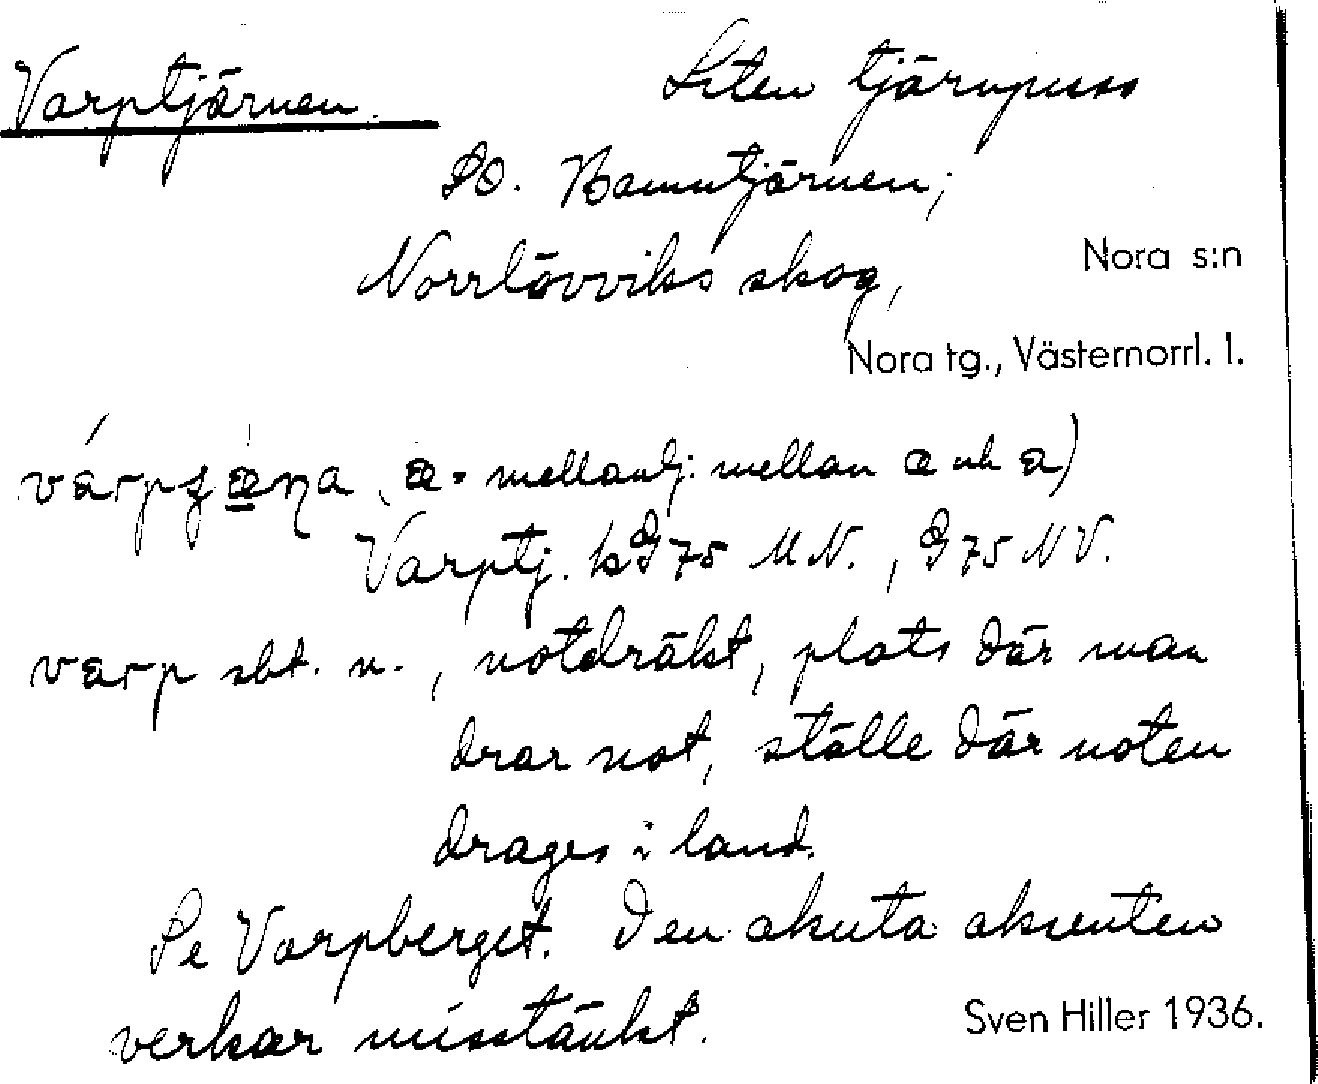 Varptjärnen. Liten tjärnpuss
SO. Namntjärnen;
Norrlövviks skog, Nora s:n
Nora tg., Västernorrl. l.
æ = mellanlj. mellan æ och a)
Varptj. kG 75 MN., G 75 NV.
varp sbt. n., notdräkt, plats där man
drar not, ställe där noten
drages i land.
Se Varpberget. Den akuta aksenten
verkar misstänkt. Sven Hiller 1936.